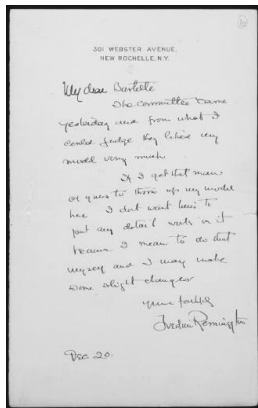 301 WEBSTER AVENUE,
NEW ROCHELLE, N.Y.
My dear Bartlett
The committee came
yesterday and from what I
could judge they liked my
model very much
If I get that man
of yours to throw up my model
here I dont want him to
put any detail work on it
because I mean to do that
myself and I may make
some slight changes
Yours faithfully
Frederic Remington
Dec 20.